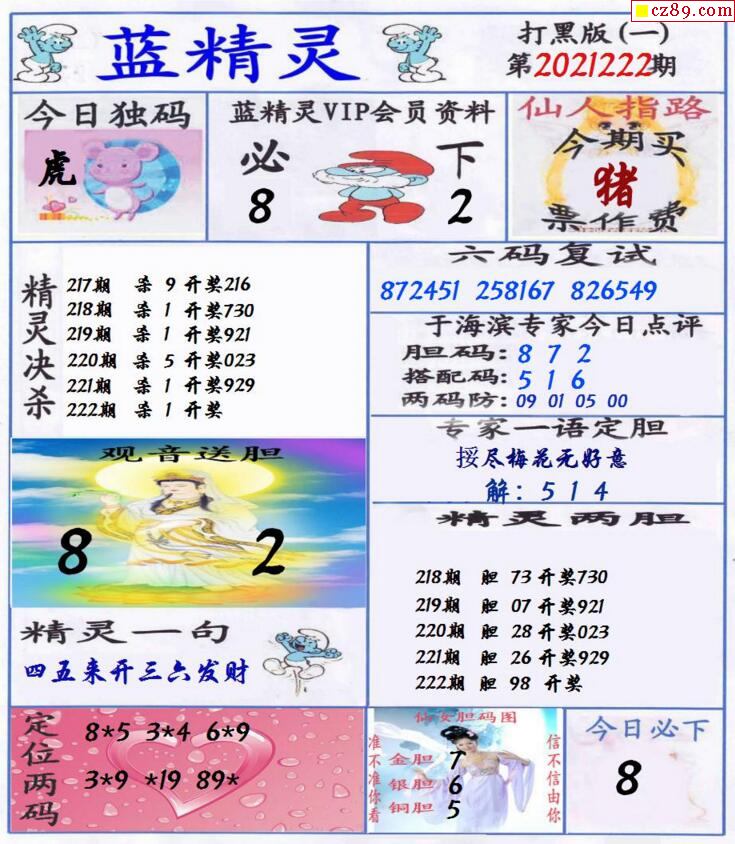 cz89.com
蓝精灵
打黑版(一)
第2021222期
今日独码
虎
蓝精灵VIP会员资料
必 下
8 2
仙人指路
今期买
猪
票作费
精灵决杀
217期 杀 9 开奖216
218期 杀 1 开奖730
219期 杀 1 开奖921
220期 杀 5 开奖023
221期 杀 1 开奖929
222期 杀 1 开奖
六码复试
872451 258167 826549
于海滨专家今日点评
胆码: 8 7 2
搭配码: 5 1 6
两码防: 09 01 05 00
专家一语定胆
挼尽梅花无好意
解: 5 1 4
观音送胆
8 2
精灵两胆
218期 胆 73 开奖730
219期 胆 07 开奖921
220期 胆 28 开奖023
221期 胆 26 开奖929
222期 胆 98 开奖
精灵一句
四五来开三六发财
定位两码
8*5 3*4 6*9
3*9 *19 89*
仙女胆码图
准不准你看
金胆 7
银胆 6
铜胆 5
信不信由你
今日必下
8